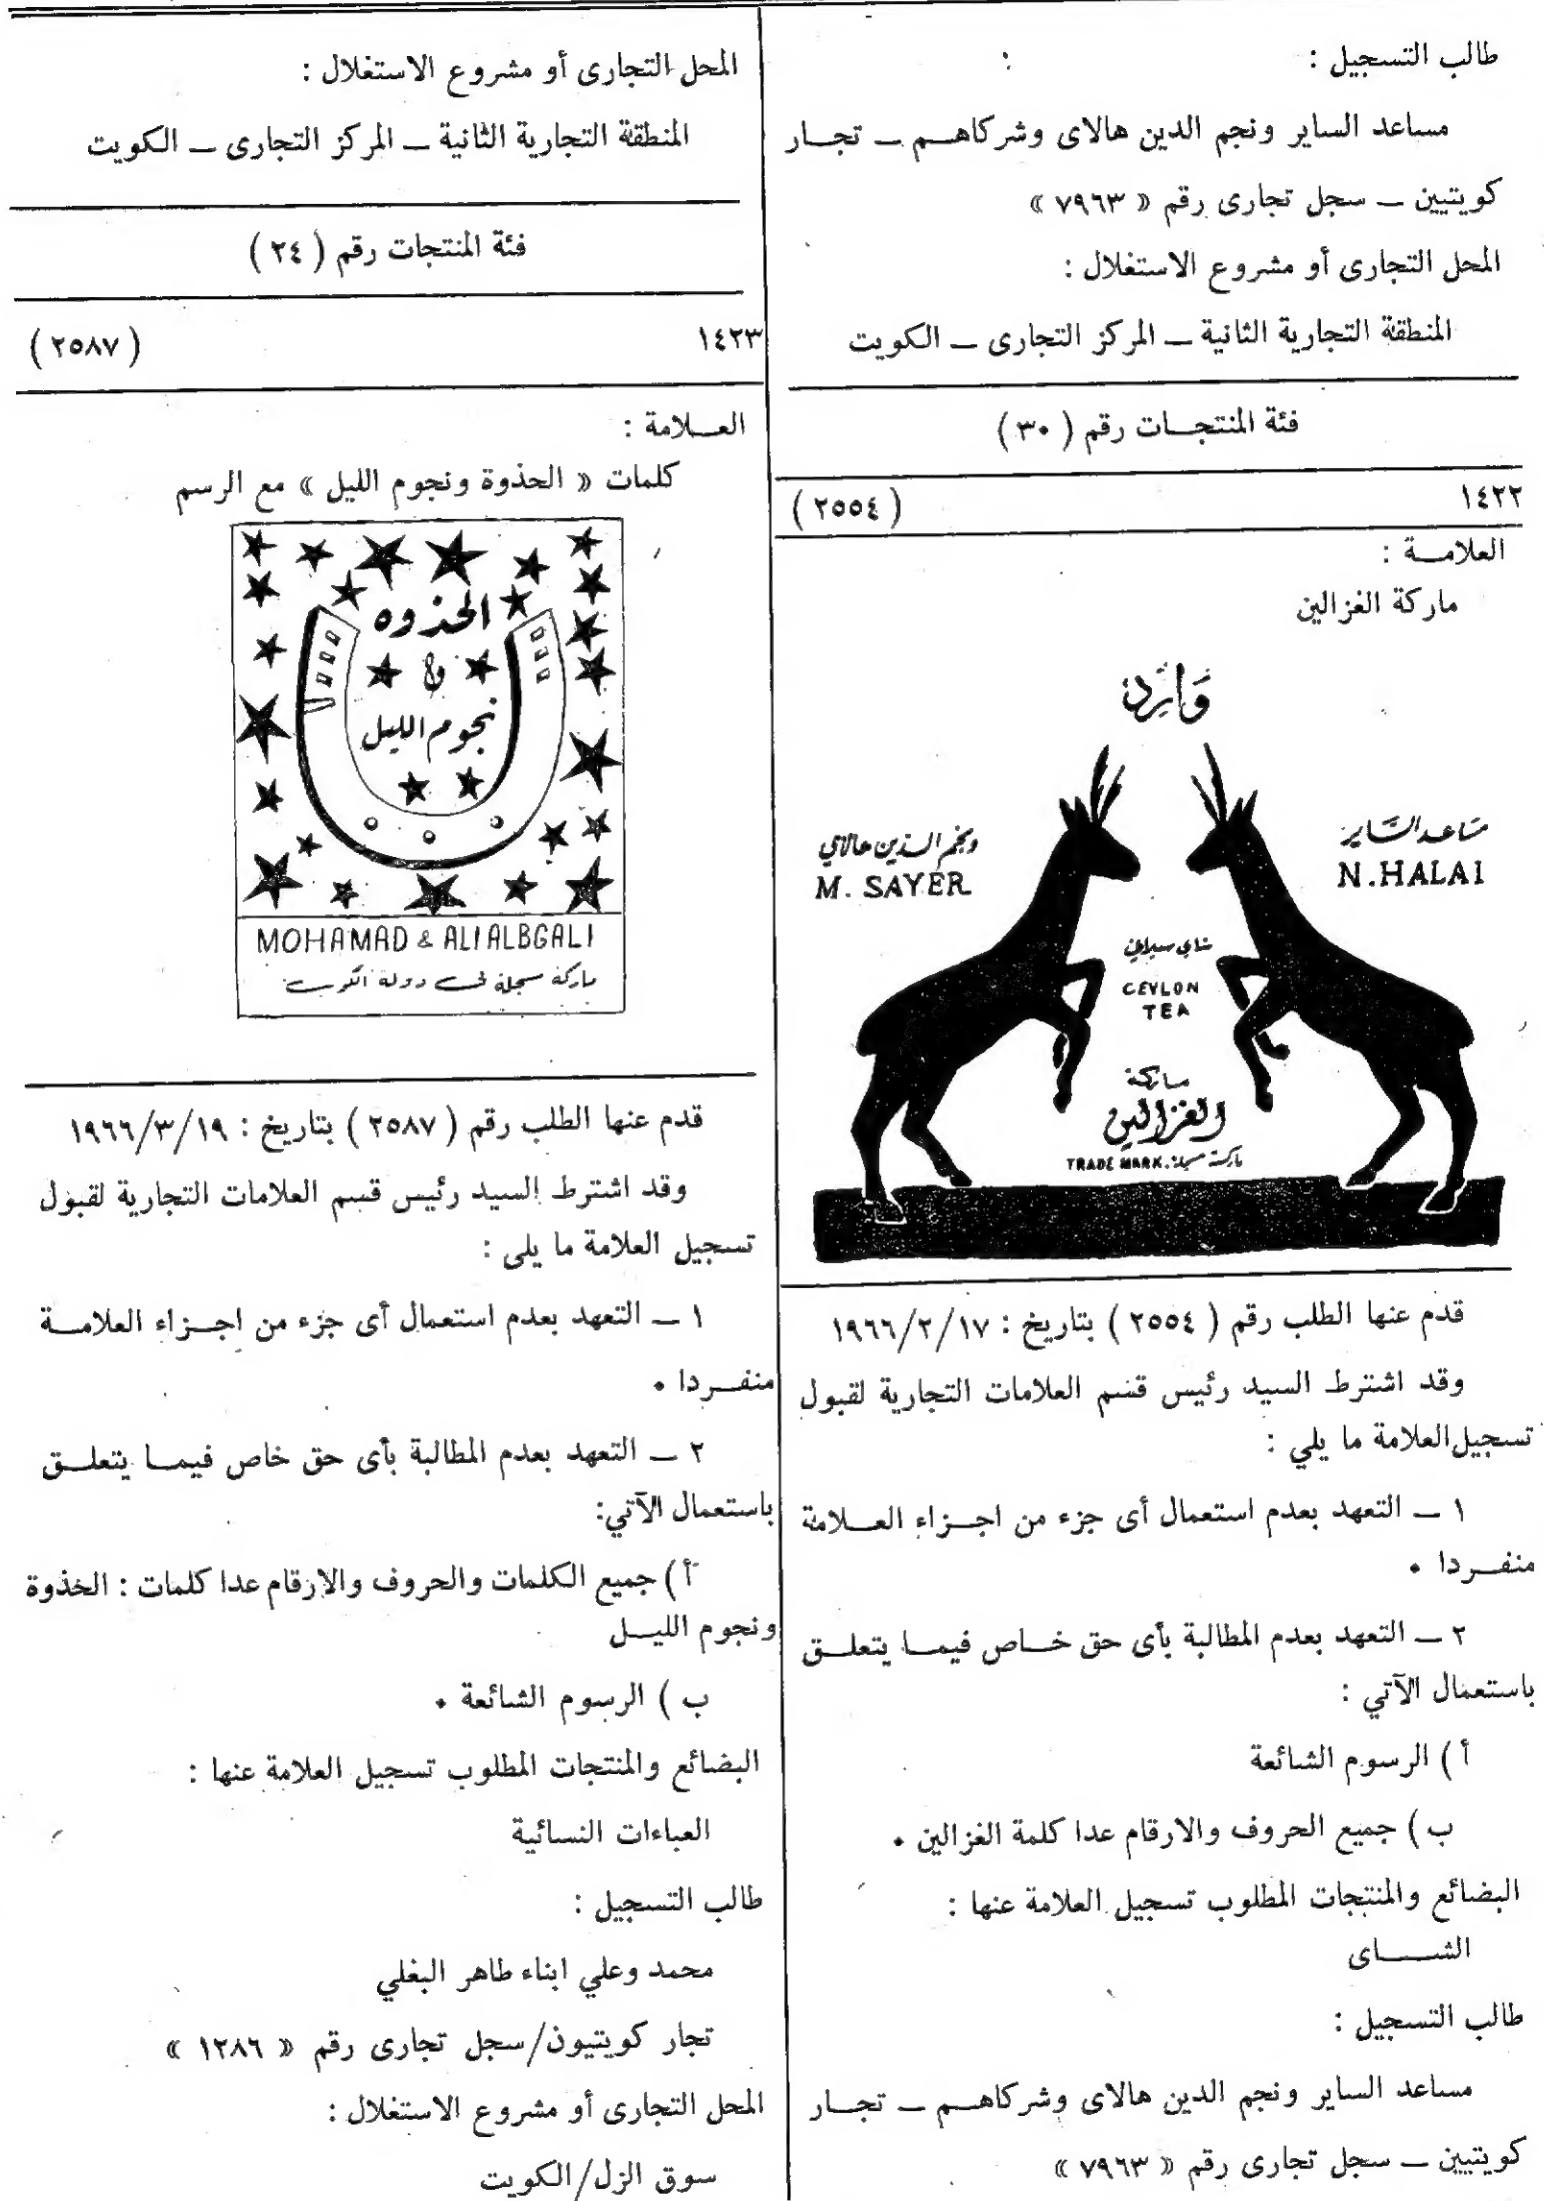 طالب التسجيل :
مساعد الساير ونجم الدين هالاى وشركاهم — تجار
كويتيين — سجل تجارى رقم « ٧٩٦٣ »
المحل التجارى أو مشروع الاستغلال :
المنطقة التجارية الثانية — المركز التجارى — الكويت
فئة المنتجات رقم ( ٣٠ )
١٤٢٢ ( ٢٥٥٤ )
العلامة :
ماركة الغزالين
وارد
مساعد الساير
N.HALAI
ونجم الدين هالاي
M. SAYER
شاي سيلاني
CEYLON
TEA
ماركة
الغزالين
TRADE MARK. ماركة مسجلة
قدم عنها الطلب رقم ( ٢٥٥٤ ) بتاريخ : ١٩٦٦/٢/١٧
وقد اشترط السيد رئيس قسم العلامات التجارية لقبول
تسجيل العلامة ما يلي :
١ — التعهد بعدم استعمال أى جزء من اجزاء العلامة
منفردا •
٢ — التعهد بعدم المطالبة بأى حق خاص فيما يتعلق
باستعمال الآتي :
أ ) الرسوم الشائعة
ب ) جميع الحروف والارقام عدا كلمة الغزالين •
البضائع والمنتجات المطلوب تسجيل العلامة عنها :
الشاى
طالب التسجيل :
مساعد الساير ونجم الدين هالاى وشركاهم — تجار
كويتيين — سجل تجارى رقم « ٧٩٦٣ »
المحل التجارى أو مشروع الاستغلال :
المنطقة التجارية الثانية — المركز التجارى — الكويت
فئة المنتجات رقم ( ٢٤ )
١٤٢٣ ( ٢٥٨٧ )
العلامة :
كلمات « الحذوة ونجوم الليل » مع الرسم
الحذوه
و
نجوم الليل
MOHAMAD & ALI ALBGALI
ماركة مسجلة في دولة الكويت
قدم عنها الطلب رقم ( ٢٥٨٧ ) بتاريخ : ١٩٦٦/٣/١٩
وقد اشترط السيد رئيس قسم العلامات التجارية لقبول
تسجيل العلامة ما يلى :
١ — التعهد بعدم استعمال أى جزء من اجزاء العلامة
منفردا •
٢ — التعهد بعدم المطالبة بأى حق خاص فيما يتعلق
باستعمال الآتي:
أ ) جميع الكلمات والحروف والارقام عدا كلمات : الخذوة
ونجوم الليل
ب ) الرسوم الشائعة •
البضائع والمنتجات المطلوب تسجيل العلامة عنها :
العباءات النسائية
طالب التسجيل :
محمد وعلي ابناء طاهر البغلي
تجار كويتيون/سجل تجارى رقم « ١٢٨٦ »
المحل التجارى أو مشروع الاستغلال :
سوق الزل/الكويت